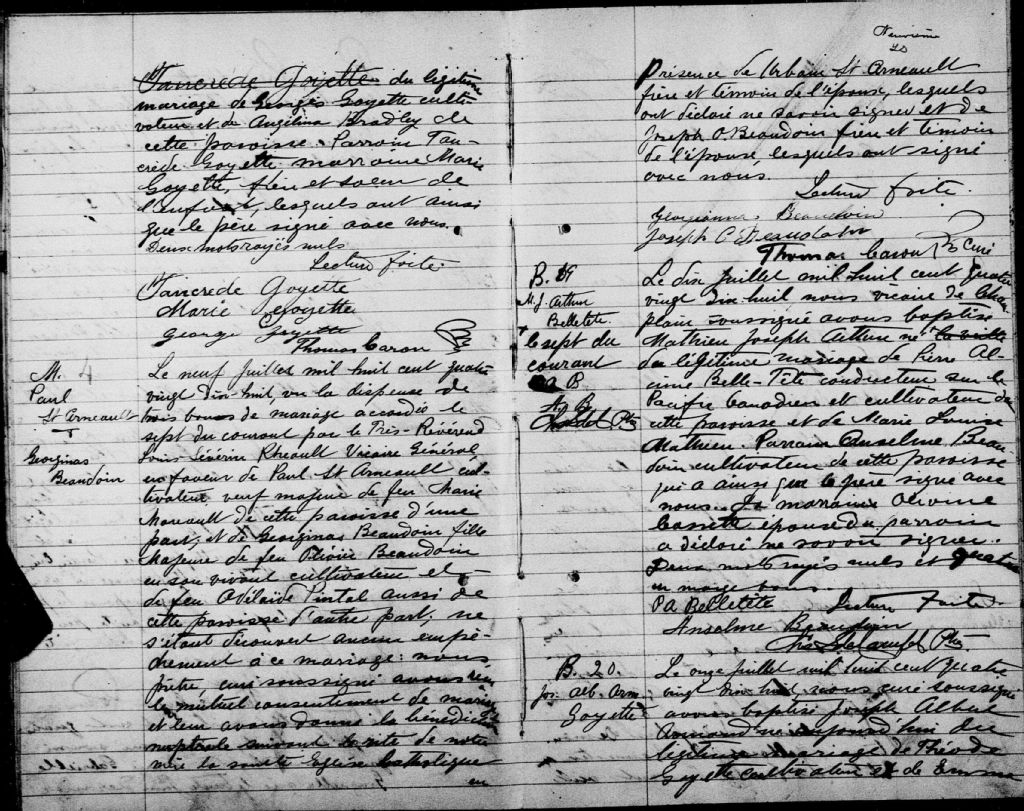 Tancrede Goyette du légitime
mariage de Georges Goyette culti
vateur et de Angélina Bradley de
cette paroisse. Parrain Tan-
crède Goyette marraine Marie
Goyette, frère et soeur de
l'enfant, lesquels ont ainsi
que le père signé avec nous.
Deux mots rayés nuls
Lecture faite.
Tancrede Goyette
Marie Goyette
George Goyette
Thomas Caron
M.
Paul
St Arneault
+
Georginas
Beaudoin
Le neuf juillet mil huit cent quatre
vingt dix-huit, vu la dispense de
trois bans de mariage accordée le
sept du courant par le Très-Révérend
Louis-Sévérin Rheault Vicaire Général,
en faveur de Paul St Arneault cul-
tivateur veuf majeur de feu Marie
de cette paroisse d'une
part; et de Georginas Beaudoin fille
Majeure de feu Olivier Beaudoin
en son vivant cultivateur et
de feu Adélaïde Pintal aussi de
cette paroisse d'autre part; ne
s'étant découvert aucun empê-
chement à ce mariage: nous,
prêtre, curé soussigné avons reçu
le mutuel consentement de mariage
et leur avons donné la bénédiction
nuptiale suivant le rite de notre
mère la sainte Eglise Catholique
en
Neuvième
présence de Urbain St Arneault
frère et témoin de l'époux, lesquels
ont déclaré ne savoir signer et de
Joseph O. Beaudoin frère et témoin
de l'épouse, lesquels ont signé
avec nous.
Lecture faite.
Georgianna Beaudoin
Joseph O Beaudoin
Thomas Caron Ptre curé
B. 19
M. J. Arthur
Belletête
+ le sept du
courant
P A B
A. B.
Ptre
Le dix juillet mil huit cent quatre
vingt dix-huit nous vicaire de Cham
plain soussigné avons baptisé
Mathieu Joseph Arthur né la veille
du légitime mariage de Pierre Al-
cime Belle-Tête conducteur sur le
Pacific Canadien et cultivateur de
cette paroisse et de Marie Louise
Mathieu. Parrain Anselme Beau
doin cultivateur de cette paroisse
qui a ainsi que le père signé avec
nous. La marraine
épouse du parrain
a déclaré ne savoir signer.
Deux mots rayés nuls et quatre
en marge bons.
P A Belletête Lecture Faite
Anselme Beaudoin
Ptre
B. 20.
Jos. Alb. Arm.
Goyette
Le onze juillet mil huit cent quatre
vingt dix huit, nous curé soussigné
avons baptisé Joseph Albert
Armand né aujourd'hui du
légitime mariage de Théode
Goyette cultivateur et de Emma